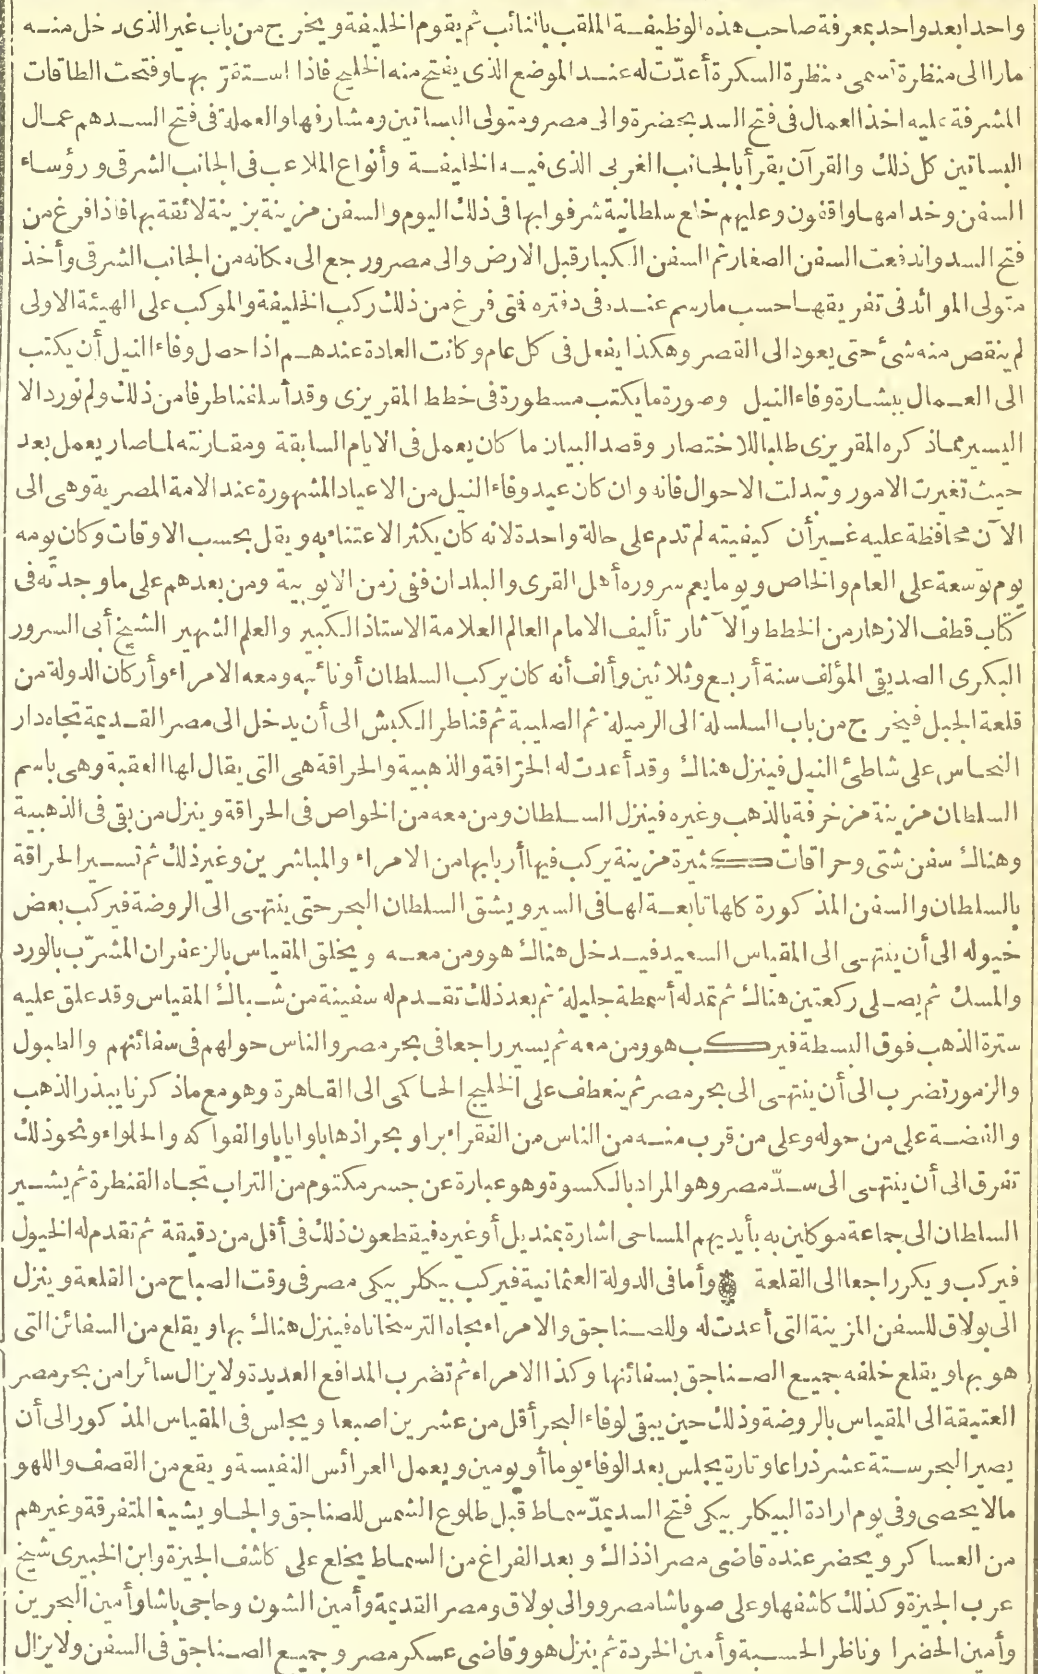 واحدا بعد واحد بمعرفة صاحب هذه الوظيفة الملقب بالنائب ثم يقوم الخليفة ويخرج من باب غير الذى دخل منه
مارا الى منظرة تسمى منظرة السكرة أعدّت له عند الموضع الذى يفتح منه الخليج فاذا استقرّ بها وفتحت الطاقات
المشرفة عليه اخذ العمال فى فتح السد بحضرة والى مصر ومتولى البساتين ومشارفها والعملة فى فتح السد هم عمال
البساتين كل ذلك والقرآن يقرأ بالجانب الغربى الذى فيه الخليفة وأنواع الملاعب فى الجانب الشرقى ورؤساء
السفن وخدامها واقفون وعليهم خلع سلطانية شرفوا بها فى ذلك اليوم والسفن مزينة بزينة لائقة بها فاذا فرغ من
فتح السد واندفعت السفن الصغار ثم السفن الكبار قبل الارض والى مصر ورجع الى مكانه من الجانب الشرقى وأخذ
متولى الموائد فى تفريقها حسب مارسم عنده فى دفتره فتى فرغ من ذلك ركب الخليفة والموكب على الهيئة الاولى
لم ينقص منه شئ حتى يعود الى القصر وهكذا يفعل فى كل عام وكانت العادة عندهم اذا حصل وفاء النيل أن يكتب
الى العمال ببشارة وفاء النيل وصورة ما يكتب مسطورة فى خطط المقريزى وقد أسلفنا طرفا من ذلك ولم نورد الا
اليسير مماذكره المقريزى طلبا للاختصار وقصد البيان ما كان يعمل فى الايام السابقة ومقارنته لماصار يعمل بعد
حيث تغيرت الامور وتبدلت الاحوال فانه وان كان عيد وفاء النيل من الاعياد المشهورة عند الامة المصرية وهى الى
الآن محافظة عليه غير أن كيفيته لم تدم على حالة واحدة لانه كان يكثر الاعتناء به ويقل بحسب الاوقات وكان يومه
يوم توسعة على العام والخاص ويوما يعم سروره أهل القرى والبلدان ففى زمن الايوبية ومن بعدهم على ماوجدته فى
كتاب قطف الازهار من الخطط والآثار تأليف الامام العالم العلامة الاستاذ الكبير والعلم الشهير الشيخ أبى السرور
البكرى الصديقى المؤلف سنة أربع وثلاثين وألف أنه كان يركب السلطان أونائبه ومعه الامراء وأركان الدولة من
قلعة الجبل فيخرج من باب السلسلة الى الرميلة ثم الصليبة ثم قناطر الكبش الى أن يدخل الى مصر القديمة تجاه دار
النحاس على شاطئ النيل فينزل هناك وقد أعدت له الحرّاقة والذهبية والحراقة هى التى يقال لها العقبة وهى باسم
السلطان مزينة مزخرفة بالذهب وغيره فينزل السلطان ومن معه من الخواص فى الحراقة وينزل من بقى فى الذهبية
وهناك سفن شتى وحراقات كثيرة مزينة يركب فيها أربابها من الامراء والمباشرين وغيرذلك ثم تسير الحراقة
بالسلطان والسفن المذكورة كلها تابعة لها فى السير ويشق السلطان البحر حتى ينتهى الى الروضة فيركب بعض
خيوله الى أن ينتهى الى المقياس السعيد فيدخل هناك هو ومن معه ويخلق المقياس بالزعفران المشرّب بالورد
والمسك ثم يصلى ركعتين هناك ثم تمد له أسمطة جليلة ثم بعد ذلك تقدم له سفينة من شباك المقياس وقد علق عليه
سترة الذهب فوق البسطة فيركب هو ومن معه ثم يسير راجعا فى بحر مصر والناس حولهم فى سفائنهم والطبول
والزمور تضرب الى أن ينتهى الى بحر مصر ثم ينعطف على الخليج الحاكمى الى القاهرة وهو مع ماذكرنا يبذر الذهب
والفضة على من حوله وعلى من قرب منه من الناس من الفقراء براوبحرا ذهابا وايابا والفواكه والحلواء ونحو ذلك
تفرق الى أن ينتهى الى سدّ مصر وهو المراد بالكسوة وهو عبارة عن جسر مكتوم من التراب تجاه القنطرة ثم يشير
السلطان الى جماعة موكلين به بأيديهم المساحى اشارة بمنديل أوغيره فيقطعون ذلك فى أقل من دقيقة ثم تقدم له الخيول
فيركب ويكرراجعا الى القلعة وأما فى الدولة العثمانية فيركب بيكلربيكى مصر فى وقت الصباح من القلعة وينزل
الى بولاق للسفن المزينة التى أعدت له وللصناجق والامراء تجاه الترسخاناه فينزل هناك بها ويقلع من السفائن التى
هو بها ويقلع خلفه جميع الصناجق بسفائنها وكذا الامراء ثم تضرب المدافع العديدة ولايزال سائرا من بحر مصر
العتيقة الى المقياس بالروضة وذلك حين يبقى لوفاء البحر أقل من عشرين اصبعا ويجلس فى المقياس المذكور الى أن
يصير البحر ستة عشر ذراعا وتارة يجلس بعد الوفاء يوما أو يومين ويعمل العرائس النفيسة ويقع من القصف واللهو
مالايحصى وفى يوم ارادة البيكلربيكى فتح السد يمدّ سماط قبل طلوع الشمس للصناجق والجاويشية المتفرقة وغيرهم
من العساكر ويحضر عنده قاضى مصر اذذاك وبعد الفراغ من السماط يخلع على كاشف الجيزة وابن الخبيرى شيخ
عرب الجيزة وكذلك كاشفها وعلى صوباشا مصر ووالى بولاق ومصر القديمة وأمين الشون وحاجى باشا وأمين البحرين
وأمين الخضرا وناظر الحسبة وأمين الخردة ثم ينزل هو وقاضى عسكر مصر وجميع الصناجق فى السفن ولايزال